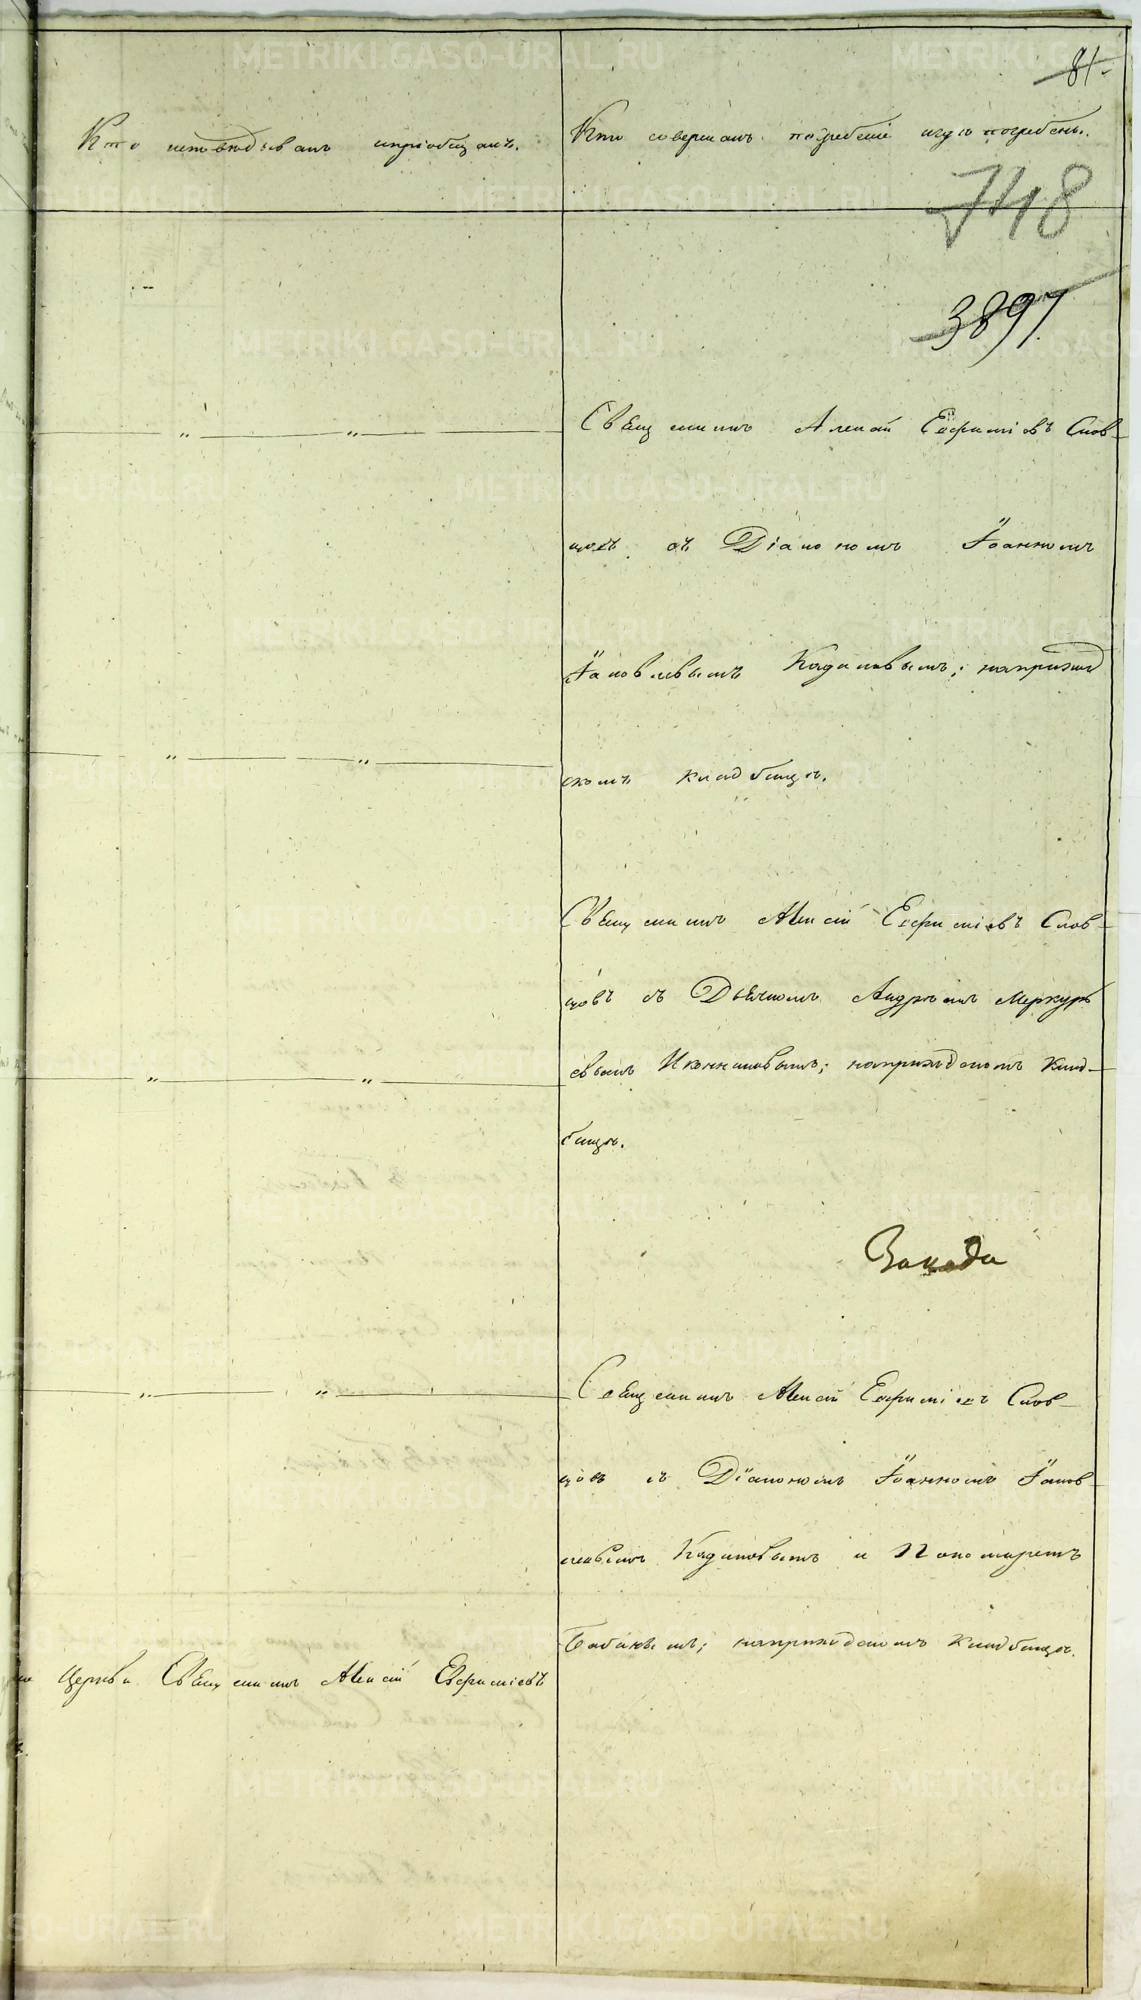 81.
Кто исповѣдывалъ и пріобщалъ.
Кто совершалъ погребеніе и гдѣ погребены.
748
3897.
Священникъ Алексѣй Евфиміевъ Слов-
цовъ съ Діакономъ Іоанномъ
Іаковлевымъ Кадиковымъ; на приход
скомъ кладбищѣ.
Священникъ Алексій Евфиміевъ Слов-
цовъ съ Дьячкомъ Андреемъ Меркурь
евымъ Иконниковымъ; на приходскомъ клад-
бищѣ.
Священникъ Алексій Евфиміевъ Слов-
цовъ съ Діакономъ Іоанномъ Іаков
левымъ Кадиковымъ и Пономаремъ
на приходскомъ кладбищѣ.
Церкви Священникъ Алексій Евфиміевъ
METRIKI.GASO-URAL.RU